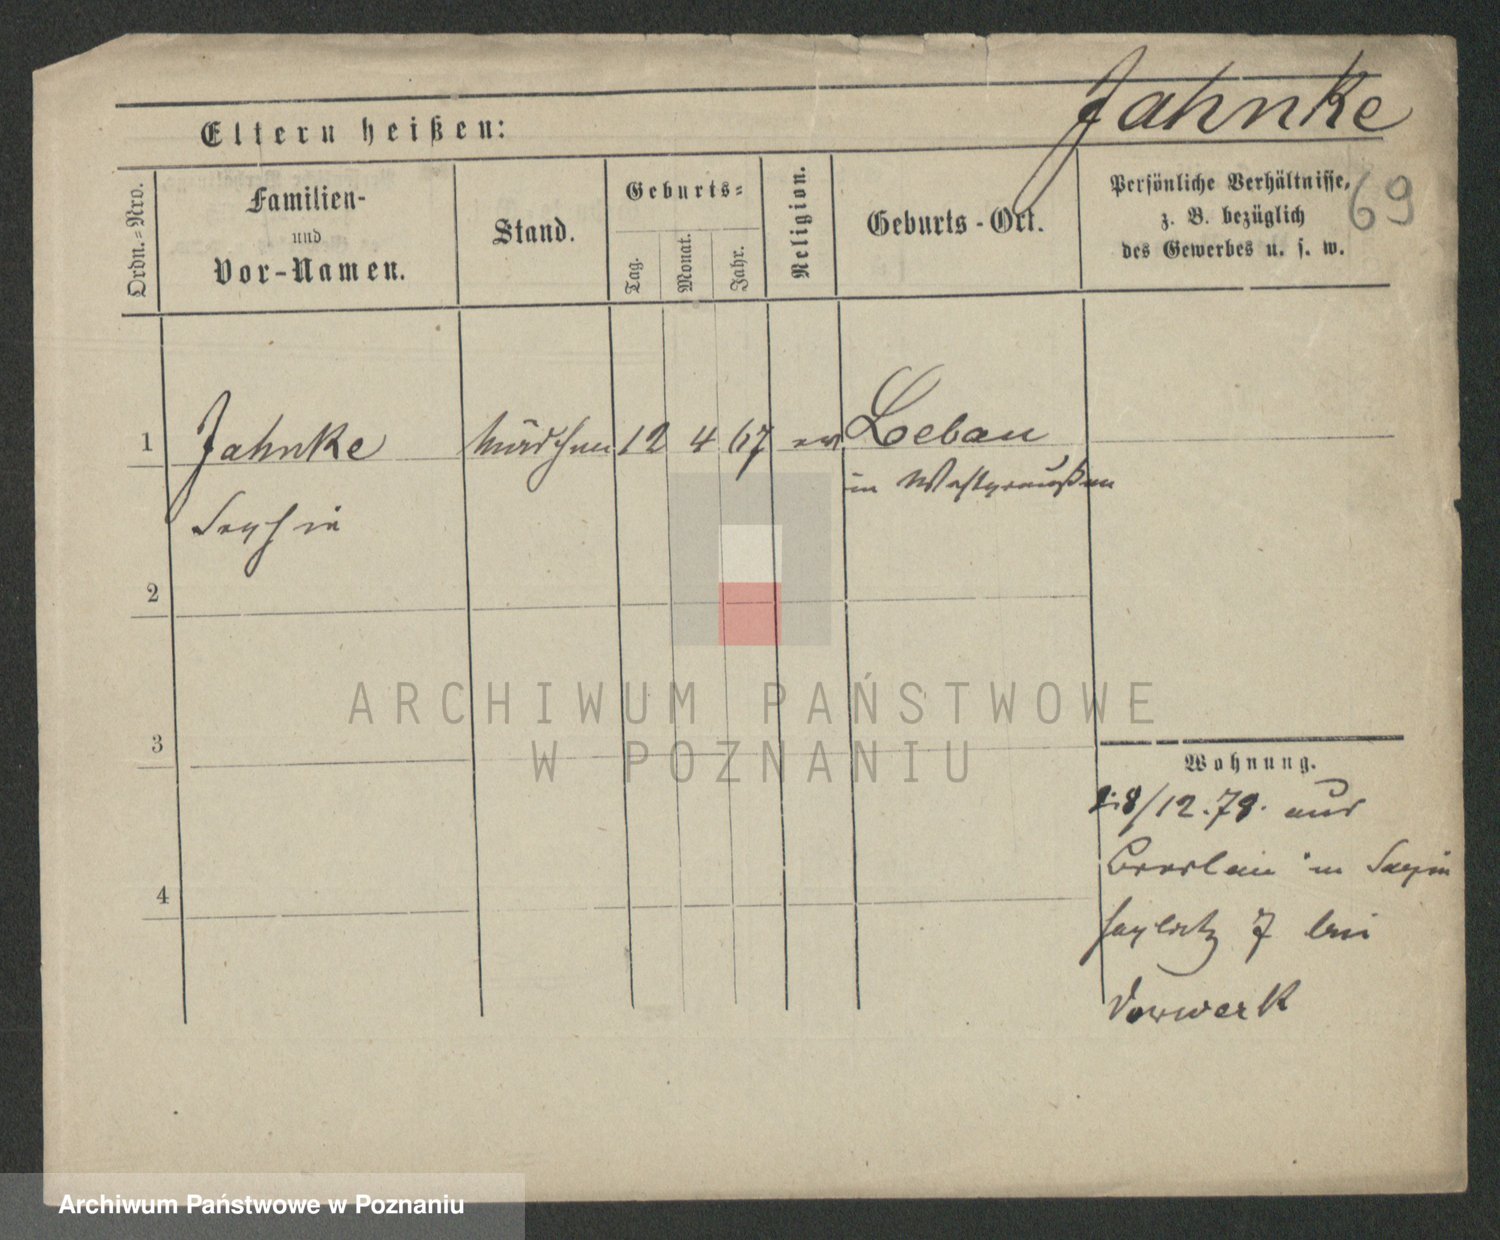 Jahnke
69
Eltern heißen:
Ordn.-Nro.
Familien-
und
Vor-Namen.
Stand.
Geburts-
Tag.
Monat.
Jahr.
Religion.
Geburts-Ort.
Persönliche Verhältnisse,
z. B. bezüglich
des Gewerbes u. s. w.
1 Jahnke Mädchen 12 4 67 ev Lebau
in Westpreußen
Sophie
2
3
4
ARCHIWUM PAŃSTWOWE
W POZNANIU
Wohnung.
8/12.78. aus
in
7 bei
Vorwerk
Archiwum Państwowe w Poznaniu